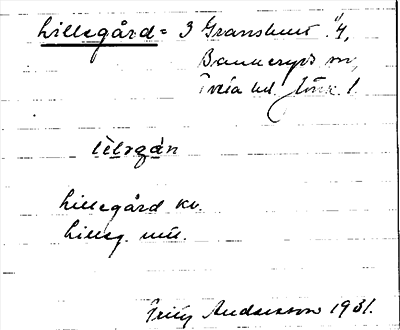 Lillegård = 3 Granshult 4,
Bankeryds sn,
Tveta hd. Jönk. l.
lìlɘgàn
Lillegård kv.
Lilleg. mtl.
Fritz Andersson 1931.